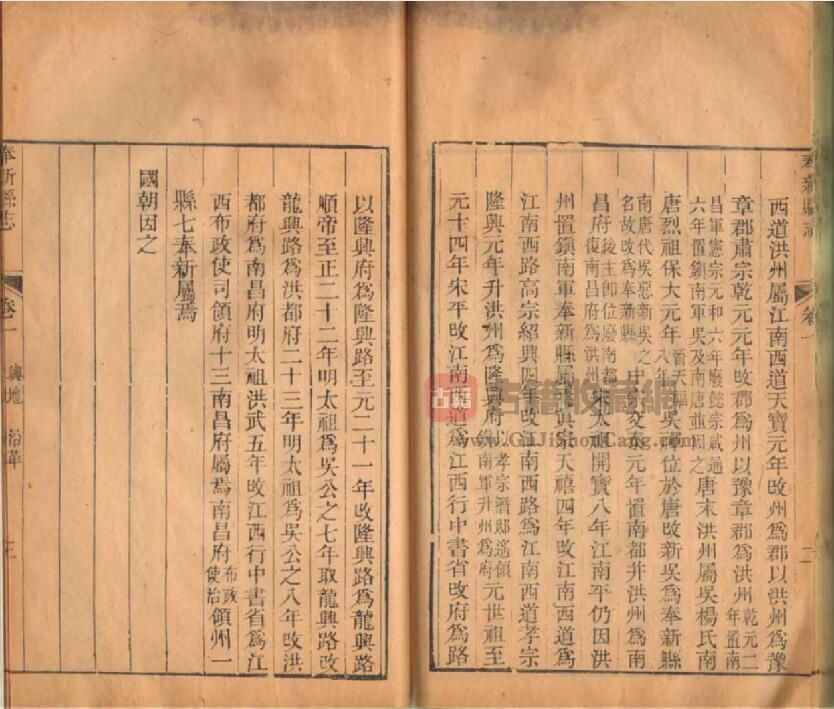 奉新縣志
卷一
二
西道洪州屬江南西道天寶元年攺州爲郡以洪州爲豫
章郡肅宗乾元元年攺郡爲州以豫章郡爲洪州乾元二年置南
昌軍憲宗元和六年廢懿宗咸通六年置鎮南軍吳及南唐並因之唐末洪州屬吳楊氏南
唐烈祖保大元年八年吳禪位於唐攺新吳爲奉新縣
南唐代吳惡新吳之名故改爲奉新縣中宗交泰元年置南都并洪州爲南
昌府後主即位廢南都復南昌府爲洪州宋太祖開寶八年江南平仍因洪
州置鎮南軍奉新縣屬焉真宗天禧四年攺江南西道爲
江南西路高宗紹興四年攺江南西路爲江南西道孝宗
隆興元年升洪州爲隆興府以孝宗潛邸遙領鎮南軍升州爲府元世祖至
元十四年宋平攺江南西道爲江西行中書省攺府爲路
以隆興府爲隆興路至元二十一年攺隆興路爲龍興路
順帝至正二十二年明太祖爲吳公之七年取龍興路攺
龍興路爲洪都府二十三年明太祖爲吳公之八年攺洪
都府爲南昌府明太祖洪武五年攺江西行中書省爲江
西布政使司領府十三南昌府屬焉南昌府布政使治領州一
縣七奉新屬焉
國朝因之
奉新縣志
卷一
輿地
沿革
三
古籍
古籍收藏網
www.GuJiShouCang.com